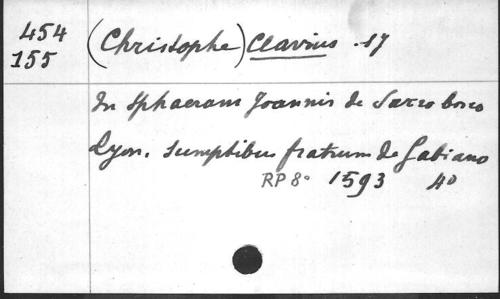 454
155
(Christophe) Clavius . SJ
In Sphaeram Joannis de Sacro bosco
Lyon. Sumptibus fratrum de Gabiano
RP 8° 1593 4°